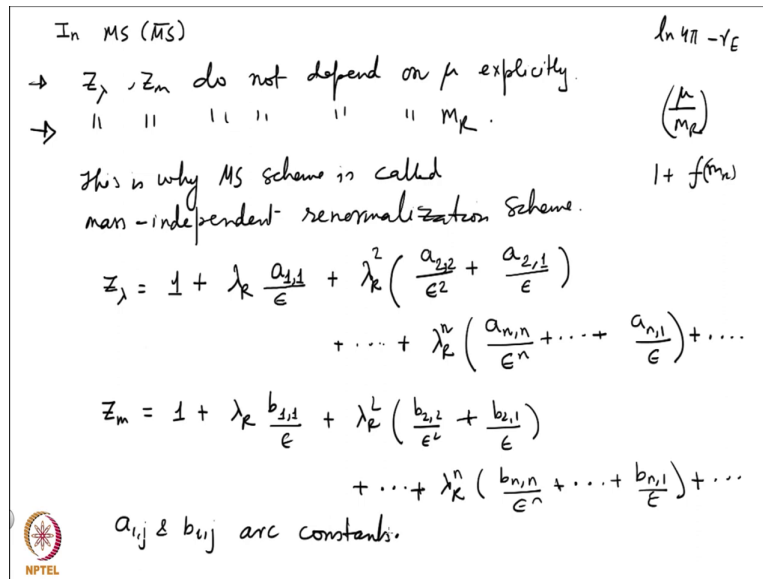 In MS (M̄S̄)
ln 4π - γ_E
→ Z_λ, Z_m do not depend on μ explicitly.
→ " " " " " " m_R.
(μ/m_R)
This is why MS scheme is called
1 + f(m_R)
mass-independent renormalization scheme.
Z_λ = 1 + λ_R a_{1,1}/ϵ + λ_R^2 ( a_{2,2}/ϵ^2 + a_{2,1}/ϵ )
+ ···· + λ_R^n ( a_{n,n}/ϵ^n + ···· + a_{n,1}/ϵ ) + ····
Z_m = 1 + λ_R b_{1,1}/ϵ + λ_R^2 ( b_{2,2}/ϵ^2 + b_{2,1}/ϵ )
+ ··· + λ_R^n ( b_{n,n}/ϵ^n + ···· + b_{n,1}/ϵ ) + ···
a_{i,j} & b_{i,j} are constants.
NPTEL